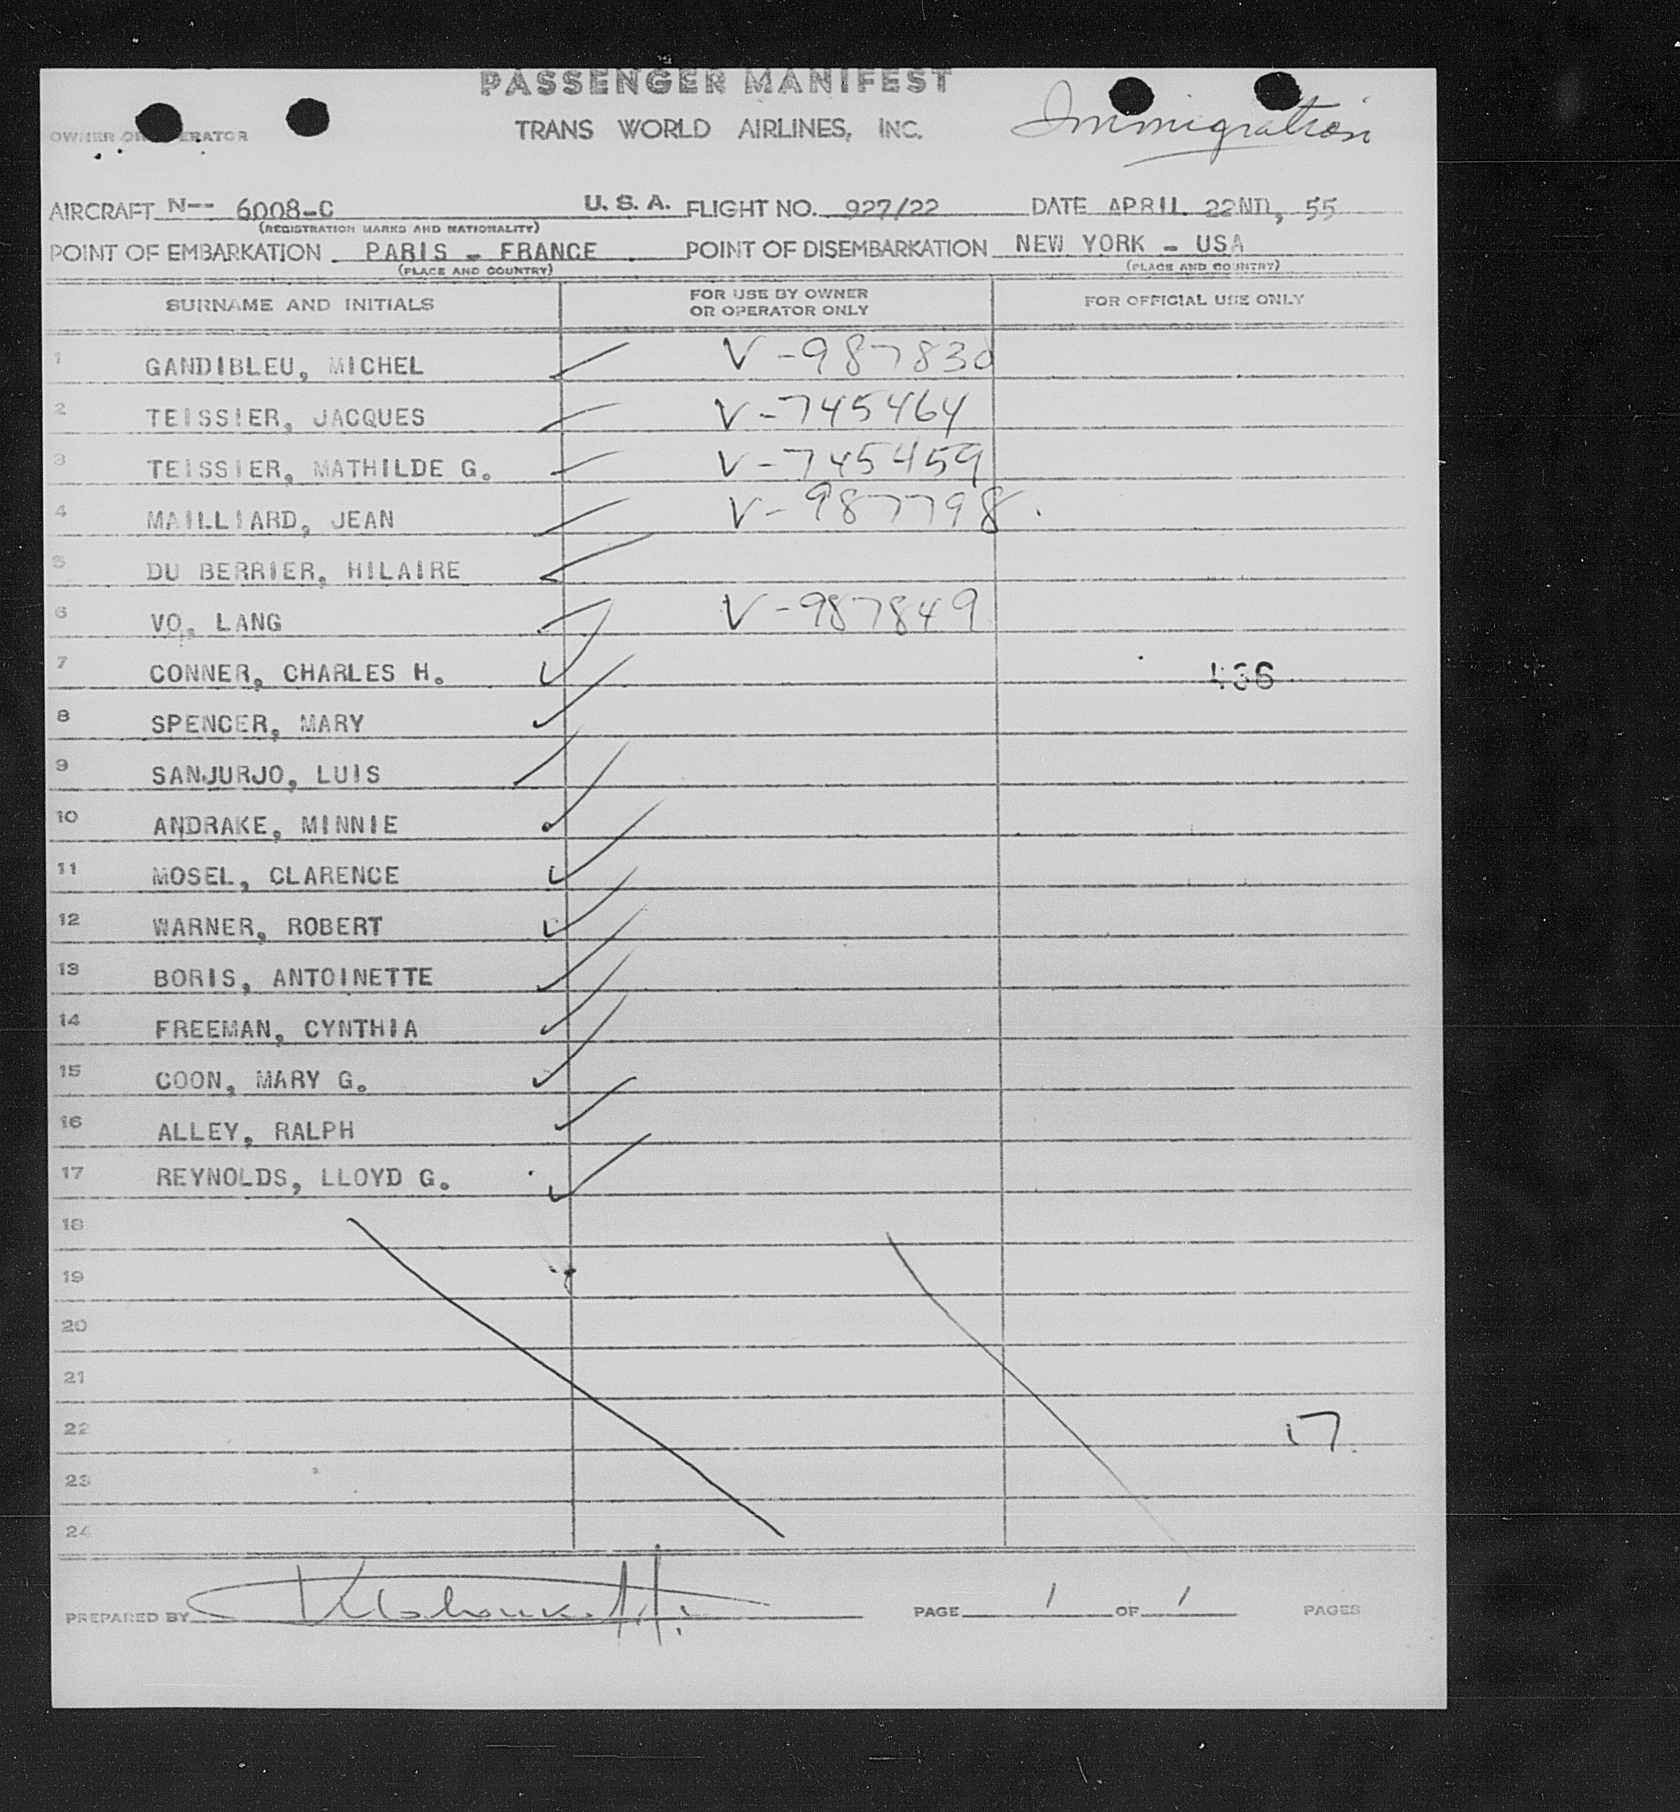 PASSENGER MANIFEST
OWNER OR OPERATOR
TRANS WORLD AIRLINES, INC.
Immigration
AIRCRAFT N-- 6008-C U. S. A. FLIGHT NO. 927/22 DATE APRIL 22ND, 55
(REGISTRATION MARKS AND NATIONALITY)
POINT OF EMBARKATION PARIS - FRANCE POINT OF DISEMBARKATION NEW YORK - USA
(PLACE AND COUNTRY) (PLACE AND COUNTRY)
SURNAME AND INITIALS FOR USE BY OWNER OR OPERATOR ONLY FOR OFFICIAL USE ONLY
1 GANDIBLEU, MICHEL V-987830
2 TEISSIER, JACQUES V-745464
3 TEISSIER, MATHILDE G. V-745459
4 MAILLIARD, JEAN V-987798.
5 DU BERRIER, HILAIRE
6 VO, LANG V-987849
7 CONNER, CHARLES H. 436
8 SPENCER, MARY
9 SANJURJO, LUIS
10 ANDRAKE, MINNIE
11 MOSEL, CLARENCE
12 WARNER, ROBERT
13 BORIS, ANTOINETTE
14 FREEMAN, CYNTHIA
15 COON, MARY G.
16 ALLEY, RALPH
17 REYNOLDS, LLOYD G.
18
19
20
21
22 17
23
24
PREPARED BY PAGE 1 OF 1 PAGES